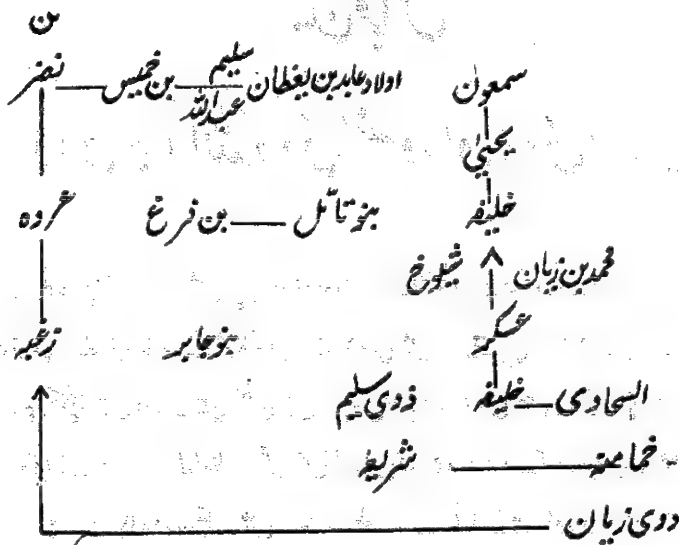 بن
سمعون اولاد عابد بن یغطان سلیم عبداللہ بن خمیس نضر
یحییٰ
خلیفہ بنو تائل بن فرغ عروہ
محمد بن زیان شیلوخ
عسکر بنو جابر زغبہ
السحادی خلیفہ ذوی سلیم
خمامنہ شریعہ
ذوی زیان